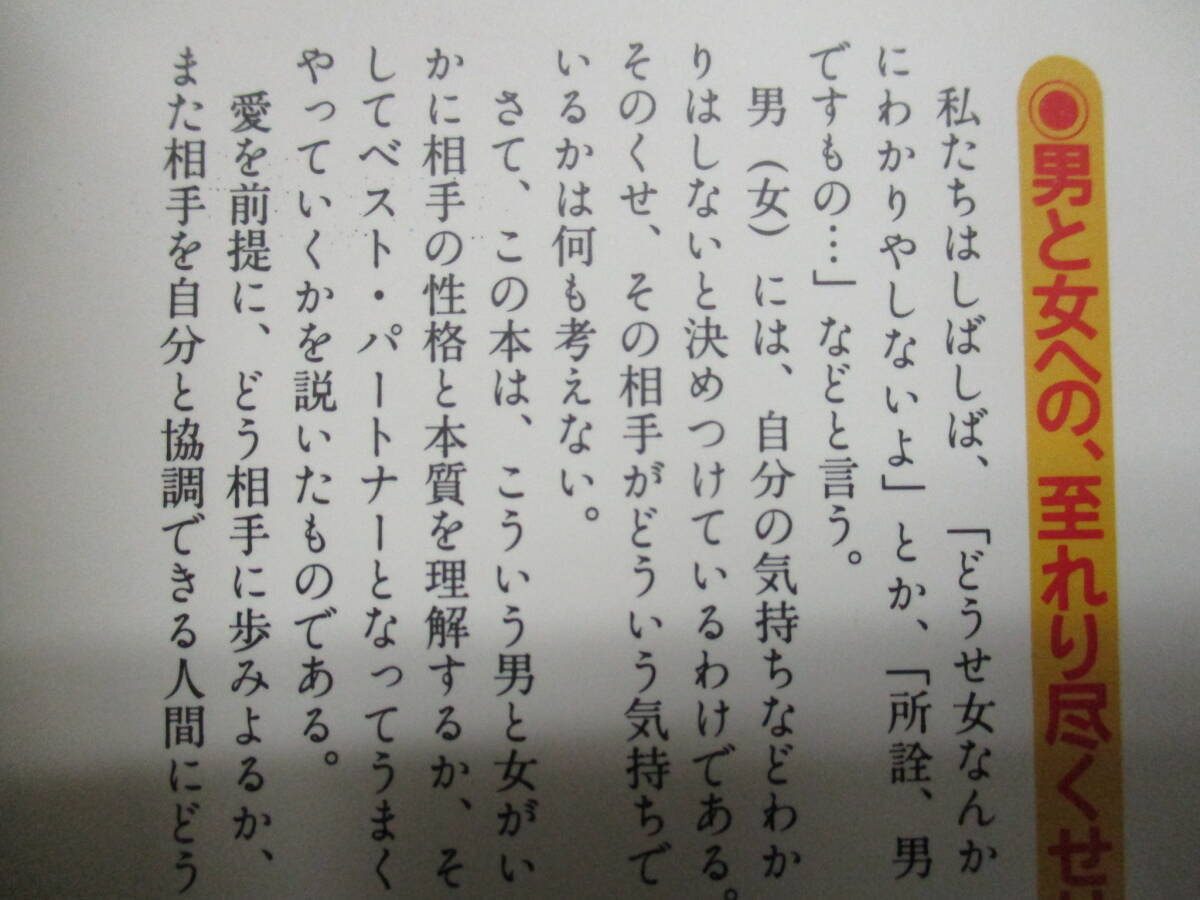 ◉男と女への、至れり尽くせ
私たちはしばしば、「どうせ女なんか
にわかりやしないよ」とか、「所詮、男
ですもの…」などと言う。
男（女）には、自分の気持ちなどわか
りはしないと決めつけているわけである。
そのくせ、その相手がどういう気持ちで
いるかは何も考えない。
さて、この本は、こういう男と女がい
かに相手の性格と本質を理解するか、そ
してベスト・パートナーとなってうまく
やっていくかを説いたものである。
愛を前提に、どう相手に歩みよるか、
また相手を自分と協調できる人間にどう